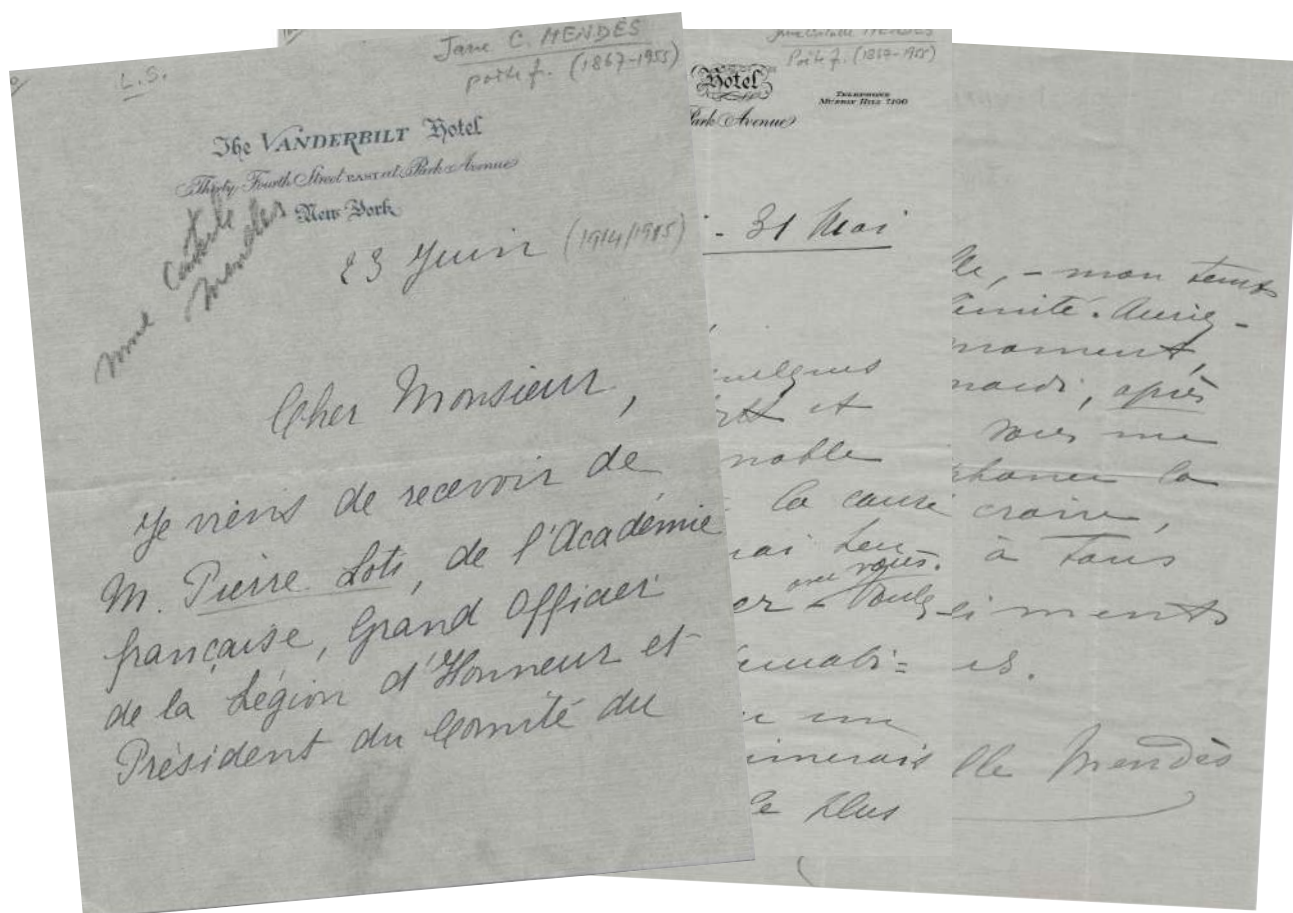 L.S.
Jane C. MENDÈS
poète f. (1867-1955)
The VANDERBILT Hotel
Thirty Fourth Street EAST at Park Avenue
New York
Mme Catulle
Mendès
23 Juin (1914/1915)
Cher Monsieur,
Je viens de recevoir de
M. Pierre Loti, de l'Académie
française, Grand Officier
de la Légion d'Honneur et
Président du Comité du
Jane Catulle MENDÈS
Poète f. (1867-1955)
Hotel
Park Avenue
TELEPHONE
MURRAY HILL 7100
- 31 Mai
quelques
et
noble
la cause
avec vous.
imerais
le plus
lle, - mon temps
limité. Auriez-
moment,
mardi, après
vous me
phoner la
croire,
à tous
iments
es.
lle Mendès